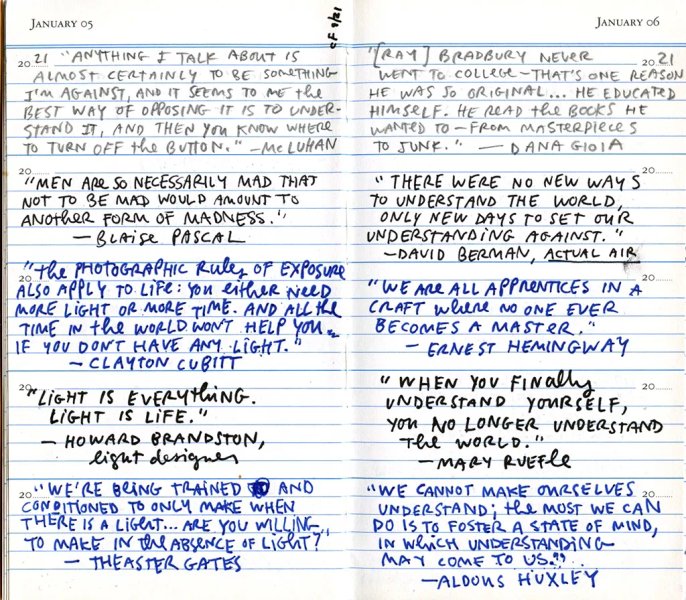 JANUARY 05
20 21 "ANYTHING I TALK ABOUT IS
ALMOST CERTAINLY TO BE SOMETHING
I'M AGAINST, AND IT SEEMS TO ME the
BEST WAY OF OPPOSING IT IS TO UNDER-
STAND IT, AND THEN YOU KNOW WHERE
TO TURN OFF the BUTTON." —McLUHAN
20
"MEN ARE SO NECESSARILY MAD THAT
NOT TO BE MAD WOULD AMOUNT TO
ANOTHER FORM OF MADNESS."
— BLAISE PASCAL
"the PHOTOGRAPHIC RULES OF EXPOSURE
20
ALSO APPLY TO LIFE: YOU either NEED
MORE LIGHT OR MORE TIME. AND ALL the
TIME IN the WORLD WON'T HELP YOU
IF YOU DON'T HAVE ANY LIGHT."
— CLAYTON CUBITT
20
"LIGHT IS EVERYthING.
LIGHT IS LIFE."
— HOWARD BRANDSTON,
light designer
20 "WE'RE BEING TRAINED AND
CONDITIONED TO ONLY MAKE WHEN
THERE IS A LIGHT... ARE YOU WILLING
TO MAKE IN the ABSENCE OF LIGHT?"
— THEASTER GATES
CF 9/21
JANUARY 06
"[RAY] BRADBURY NEVER 20 21
WENT TO COLLEGE—THAT'S ONE REASON
HE WAS SO ORIGINAL... HE EDUCATED
HIMSELF. HE READ the BOOKS HE
WANTED TO — FROM MASTERPIECES
TO JUNK." — DANA GIOIA
20
"THERE WERE NO NEW WAYS
TO UNDERSTAND THE WORLD,
ONLY NEW DAYS TO SET OUR
UNDERSTANDING AGAINST."
—DAVID BERMAN, ACTUAL AIR
20
"WE ARE ALL APPRENTICES IN A
CRAFT where NO ONE EVER
BECOMES A MASTER."
— ERNEST HEMINGWAY
"WHEN YOU FINally 20
UNDERSTAND YOURSELF,
YOU NO LONGER UNDERSTAND
the WORLD."
—MARY RUEFLE
"WE CANNOT MAKE OURSELVES 20
UNDERSTAND; the MOST WE CAN
DO IS TO FOSTER A STATE OF MIND,
IN which UNDERSTANDING
MAY COME TO US."
—ALDOUS HUXLEY